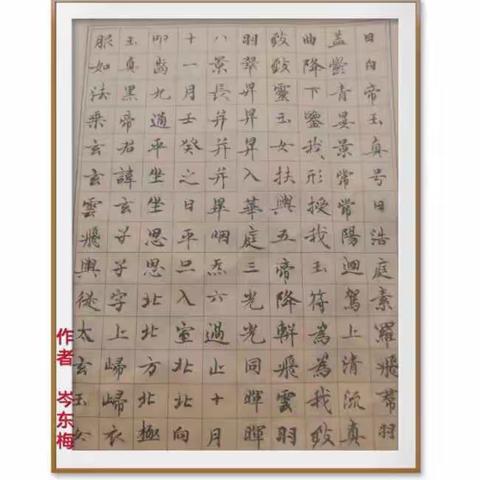 曰白帝玉真号曰浩庭素羅飛帶羽
盖鬱青晏景常常陽迴駕上清流真
曲降下鑒我形授我玉符為為我致
致致靈玉女扶輿五帝降軿飛雲羽
羽翠昇昇昇入華庭三光光同暉暉
八景長并并并畢咽炁六過止十月
十一月壬癸之日平旦入室北北向
叩齒九通平坐坐思思北北方北極
玉真黑帝君諱玄子子字上歸歸衣
服如法乘玄玄雲飛輿從太玄玉女
作者 岑东梅